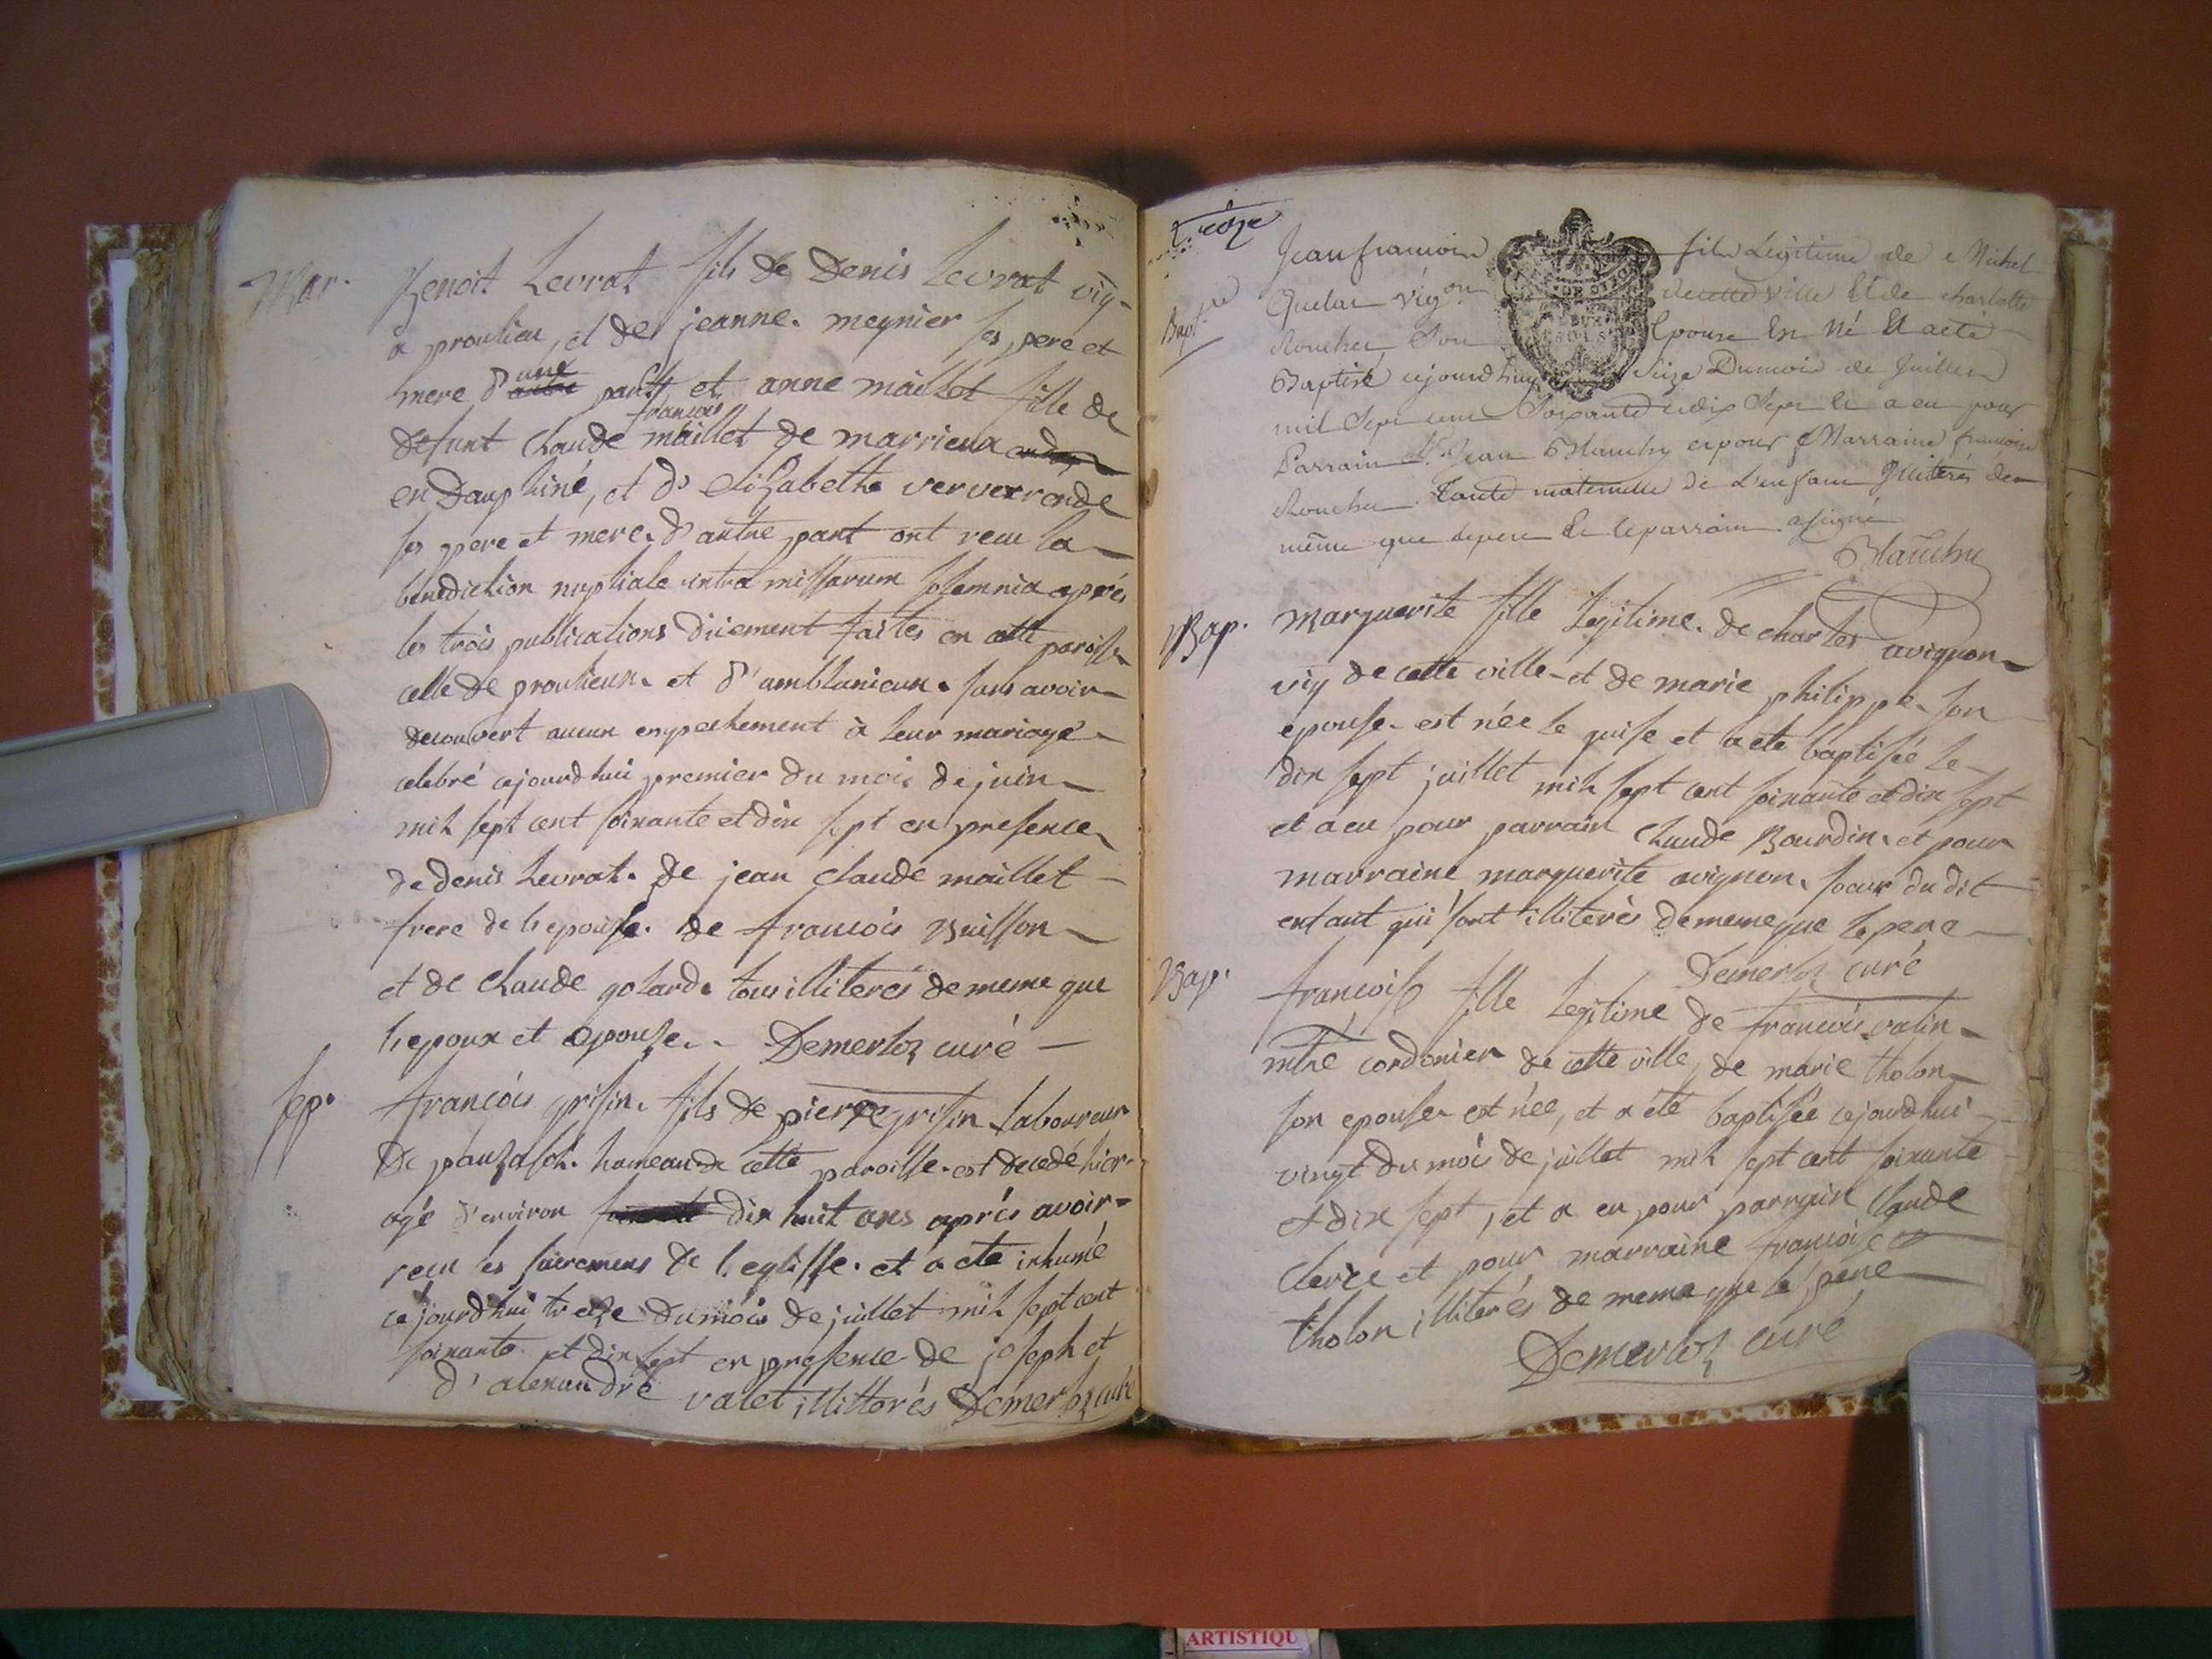 Mar. Benoit Levrat fils de Denis Levrat vig-
a proulieu, et de jeanne. meynier ses pere et
mere d'une part et anne maillet fille de
defunt Claude françois maillet de marrieux
en Dauphiné, et d'elizabeth ververronde
ses pere et mere. d'autre part ont recu la
benediction nuptiale intra missarum solemnia après
les trois publications duement faites en cette paroisse
celle de proulieux. et d'amblanieux. sans avoir
decouvert aucun empechement à leur mariage
celebré cejourdhui premier du mois de juin
mil sept cent soixante et dix sept en presence
de denis Levrat. de jean claude maillet
frere de l'epouse. de francois Buisson
et de Claude golard. tous illiterés de meme que
l'epoux et epouse. Demerloz curé
sep. francois grisin. fils de pierre grisin laboureur
De hameau de cette paroisse. est decedé hier
agé d'environ dix huit ans après avoir
recu les sacremens de l'eglisse. et a ete inhumé
cejourdhui treize du mois de juillet mil sept cent
soixante et dix sept en presence de joseph et
d'alexandre valet illitterés Demerloz curé
treize
Jean francois fils Legitime de Michel
Bapt. Quelar vig.on de cette ville Et de charlotte
Rouchu Son Epouse En Né Et a eté
Baptisé cejourdhuy Seize Dumois de Juillet
mil Sept cent Soixante et dix Sept Et a eu pour
Parrain Sr. Jean Blanchy et pour Marraine francoise
Rouchu. Tante maternelle de L'enfant Illiterés de
même que le pere Et le parrain a signé
Blanchy
Bap. Marguerite fille Legitime. de charles avignon
vig de cette ville et de marie philippe. son
epouse. est née le quise et a ete baptisée le
dix sept juillet mil sept cent soixante et dix sept
et a eu pour parrain Claude Bourdin. et pour
marraine marguerite avignon. soeur du dit
enfant qui sont illiterés de meme que le pere
Demerloz curé
Bap. francoise fille Legitime de francois valin
mtre cordonier de cette ville, de marie tholon
son epouse est née, et a eté baptisée cejourdhui
vingt du mois de juillet mil sept cent soixante
et dix sept, et a eu pour parrain Claude
Clerce et pour marraine francoise
tholon illiterés de meme que le pere
Demerloz curé
ARTISTIQU